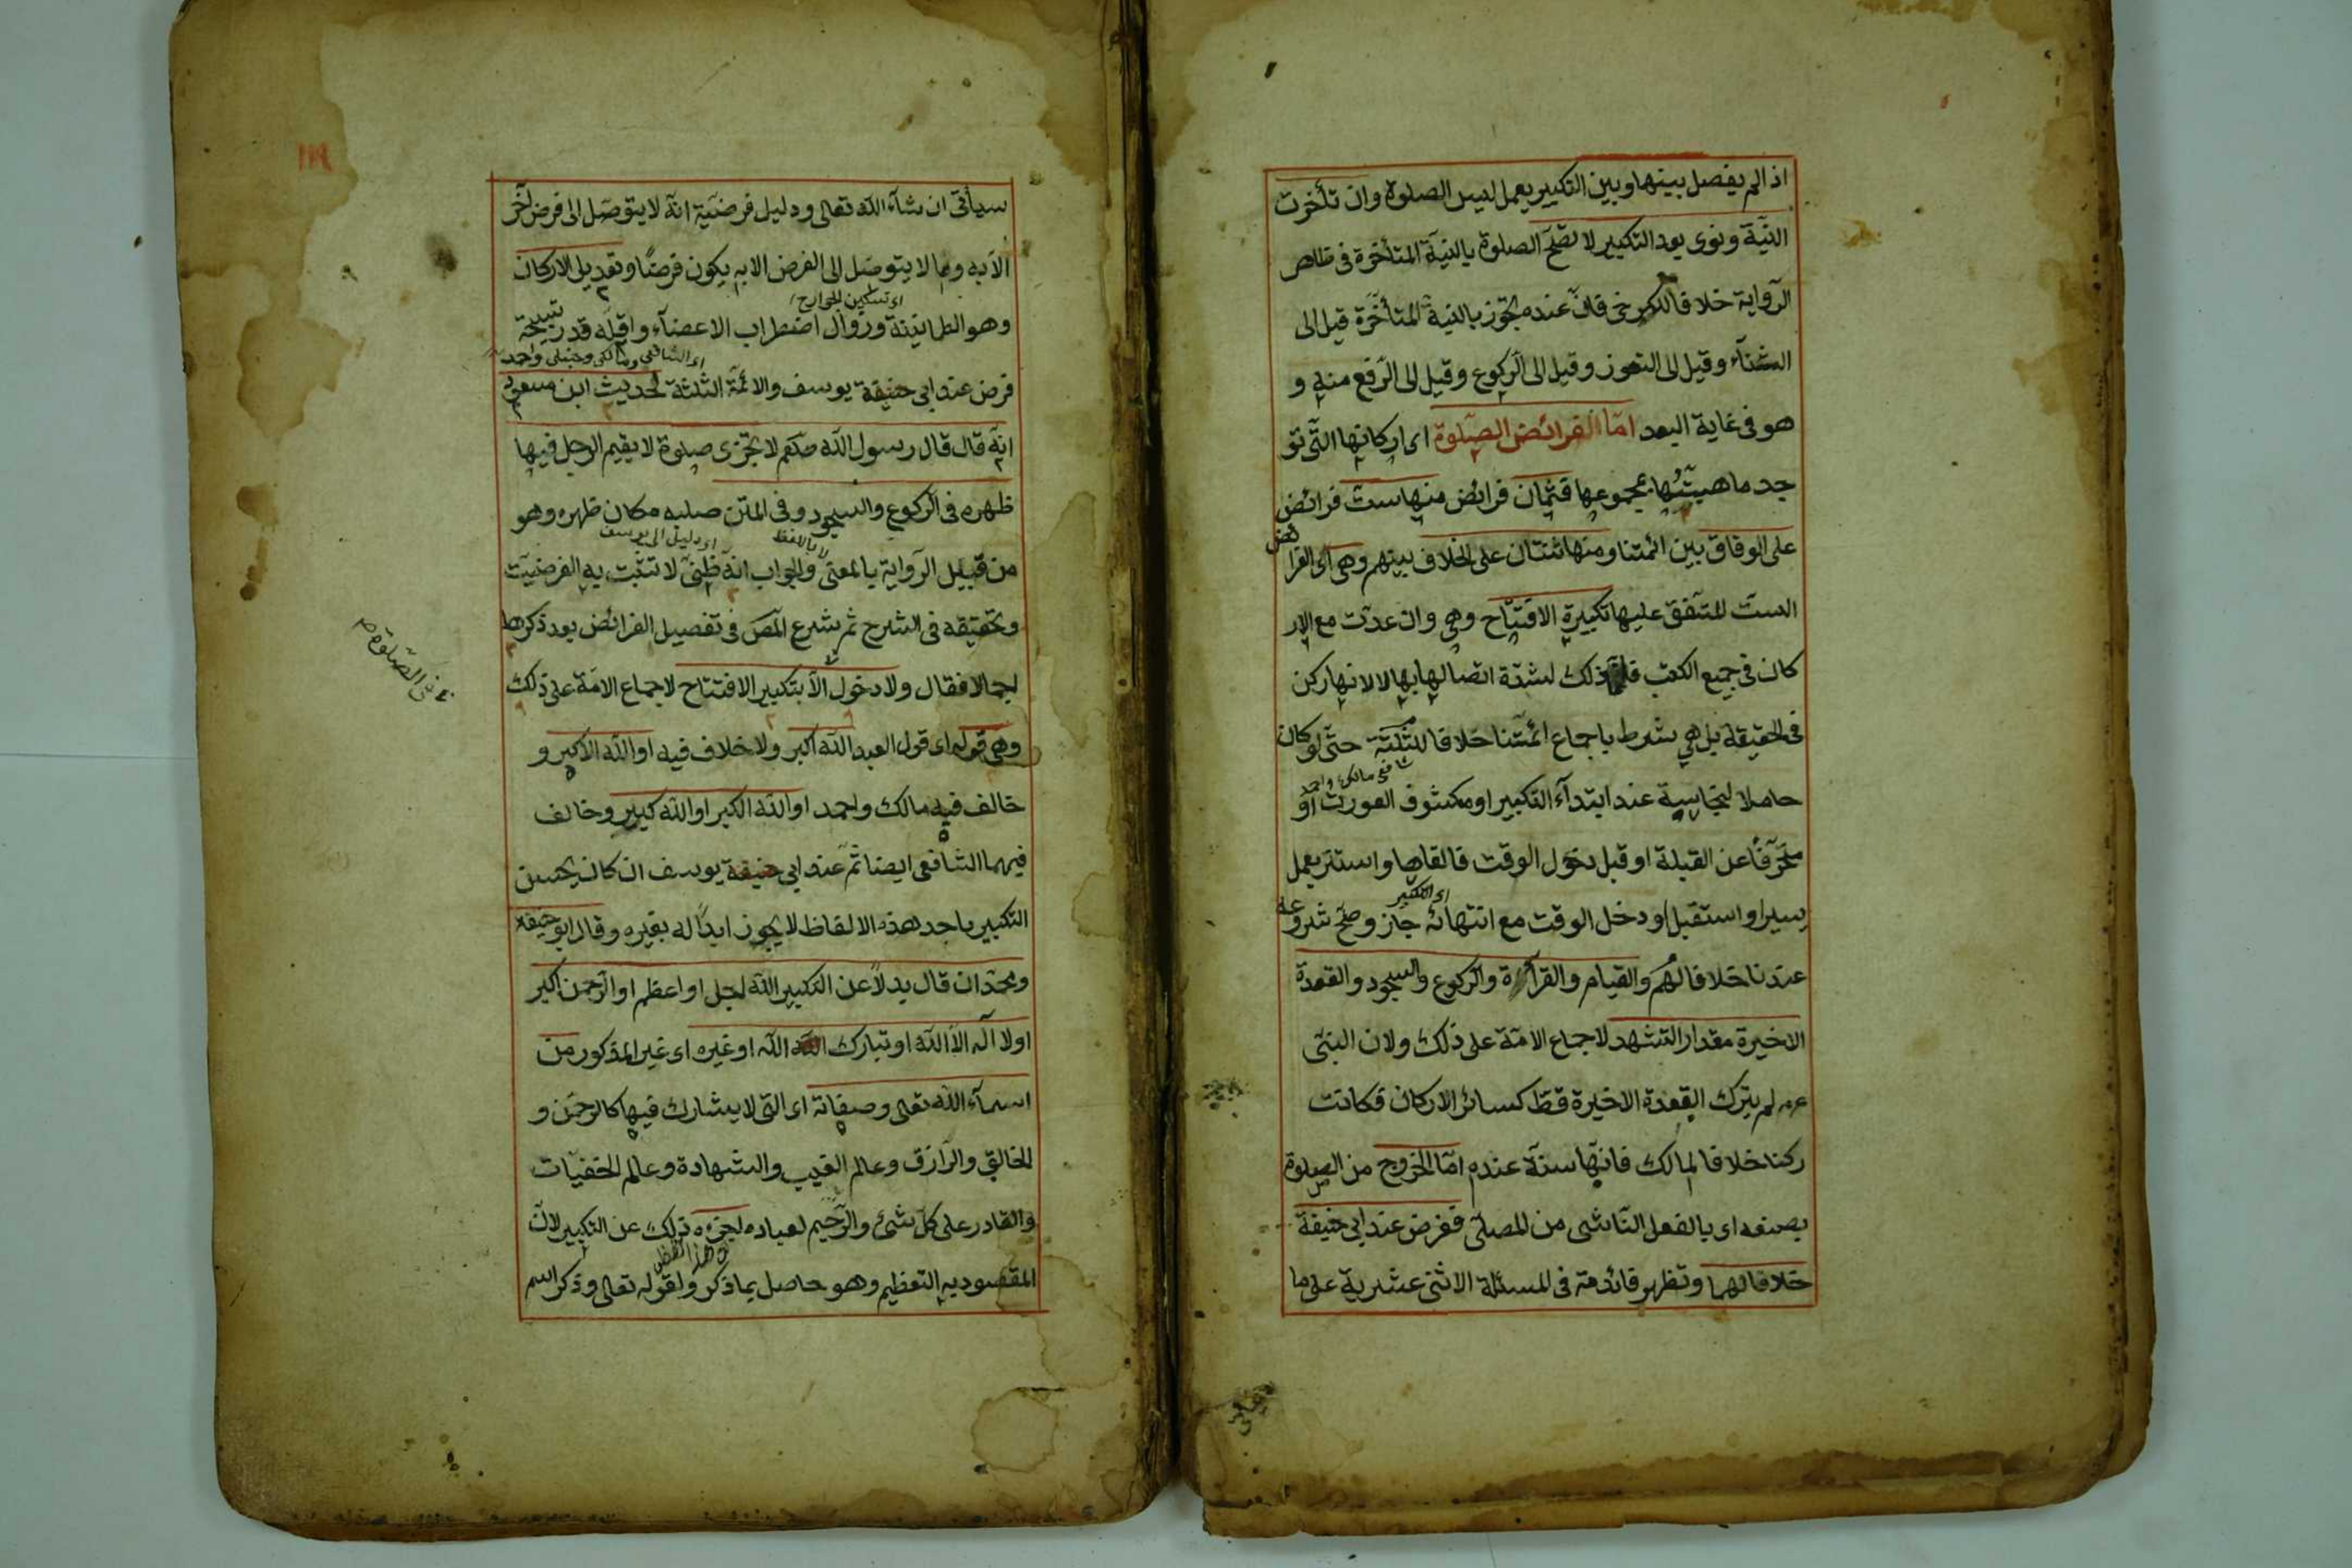 اذا لم يفصل بينها وبين التكبير بعمل ليس الصلوة وان تأخرت
النية ونوى بعد التكبير لا تصح الصلوة بالنية المتأخرة فى ظاهر
الرواية خلافا للكرخى فان عنده يجوز بالنية المتأخرة قيل الى
الثناء وقيل الى التعوز وقيل الى الركوع وقيل الى الرفع منه و
هو فى غاية البعد امّا الفرائض الصلوة اى اركانها التى تو
جد ماهيتها بمجموعها فثمان فرائض منها ست فرائض
على الوفاق بين ائمتنا ومنها ثنتان على الخلاف بينهم وهى اى الفرا
ئض
الست المتفق عليها تكبيرة الافتتاح وهى وان عدّت مع الار
كان فى جميع الكتب ذلك لشدة اتصالها بها لا لانها ركن
فى الحقيقة بل هى شرط باجماع ائمتنا خلافا للثلثة حتى لو كان
شافعى مالك واحمد
حاملا لنجاسة عند ابتدآء التكبير او مكشوف العورت او
منحرفًا عن القبلة او قبل دخول الوقت فالقاها واستتر بعمل
اى التكبير
يسير او استقبل او دخل الوقت مع انتهائه جاز وصح شروعه
عندنا خلافا لهم والقيام والقرآءة والركوع والسجود والقعدة
الاخيرة مقدار التشهد لاجماع الامة على ذلك ولان النبى
عم لم يترك القعدة الاخيرة قط كسائر الاركان فكانت
ركنا خلافا لمالك فانها سنة عنده امّا الخروج من الصلوة
بصنعه اى بالفعل الناشى من المصلى ففرض عند ابى حنيفة
خلافا لهما وتظهر فائدته فى المسئلة الاثنى عشرية على ما
سيأتى ان شآء الله تعالى ودليل فرضية انه لا يتوصل الى فرض آخر
الا به وما لا يتوصل الى الفرض الا به يكون فرضًا وتعديل الاركان
اى تسكين الجوارح
وهو الطمانينة وزوال اضطراب الاعضآء واقله قدر تسبيحة
اى الشافعى ومالكى وحنبلى واحمد
فرض عند ابى حنيفة يوسف والائمة الثلثة لحديث ابن مسعود
انه قال قال رسول الله صلعم لا تجزى صلوة لا يقيم الرجل فيها
ظهره فى الركوع والسجود وفى المتن صلبه مكان ظهره وهو
لا باللفظ
اى دليل ابى يوسف
من قبيل الرواية بالمعنى والجواب انه ظنى لا تثبت به الفرضيت
وتحقيقه فى الشرح ثم شرع المص فى تفصيل الفرائض بعد ذكرها
اجمالا فقال ولا دخول الا بتكبير الافتتاح لاجماع الامة على ذلك
وهى قوله اى قول العبد الله اكبر ولا خلاف فيه او الله الاكبر و
خالف فيه مالك واحمد او الله الكبر او الله كبير وخالف
فيهما الشافعى ايضا ثم عند ابى حنيفة يوسف ان كان يحسن
التكبير باحد هذه الالفاظ لا يجوز ابدًا له بغيره وقال ابو حنيفة
ومحمد ان قال بدلاً عن التكبير الله اجل او اعظم او الرحمن اكبر
او لا اله الا الله او تبارك الله او غيره اى غير المذكور من
اسمآء الله تعالى وصفاته اى التى لا يشارك فيها كالرحمن و
الخالق والرازق وعالم الغيب والشهادة وعالم الخفيات
والقادر على كل شئ والرحيم لعباده اجزءه ذلك عن التكبير لان
المقصود به التعظيم وهو حاصل بما ذكر ولقوله تعالى وذكر اسم